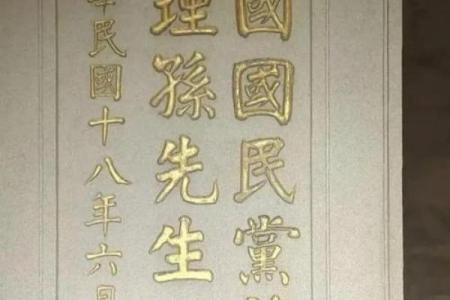 國國民黨
理孫先生
民國十八年六月